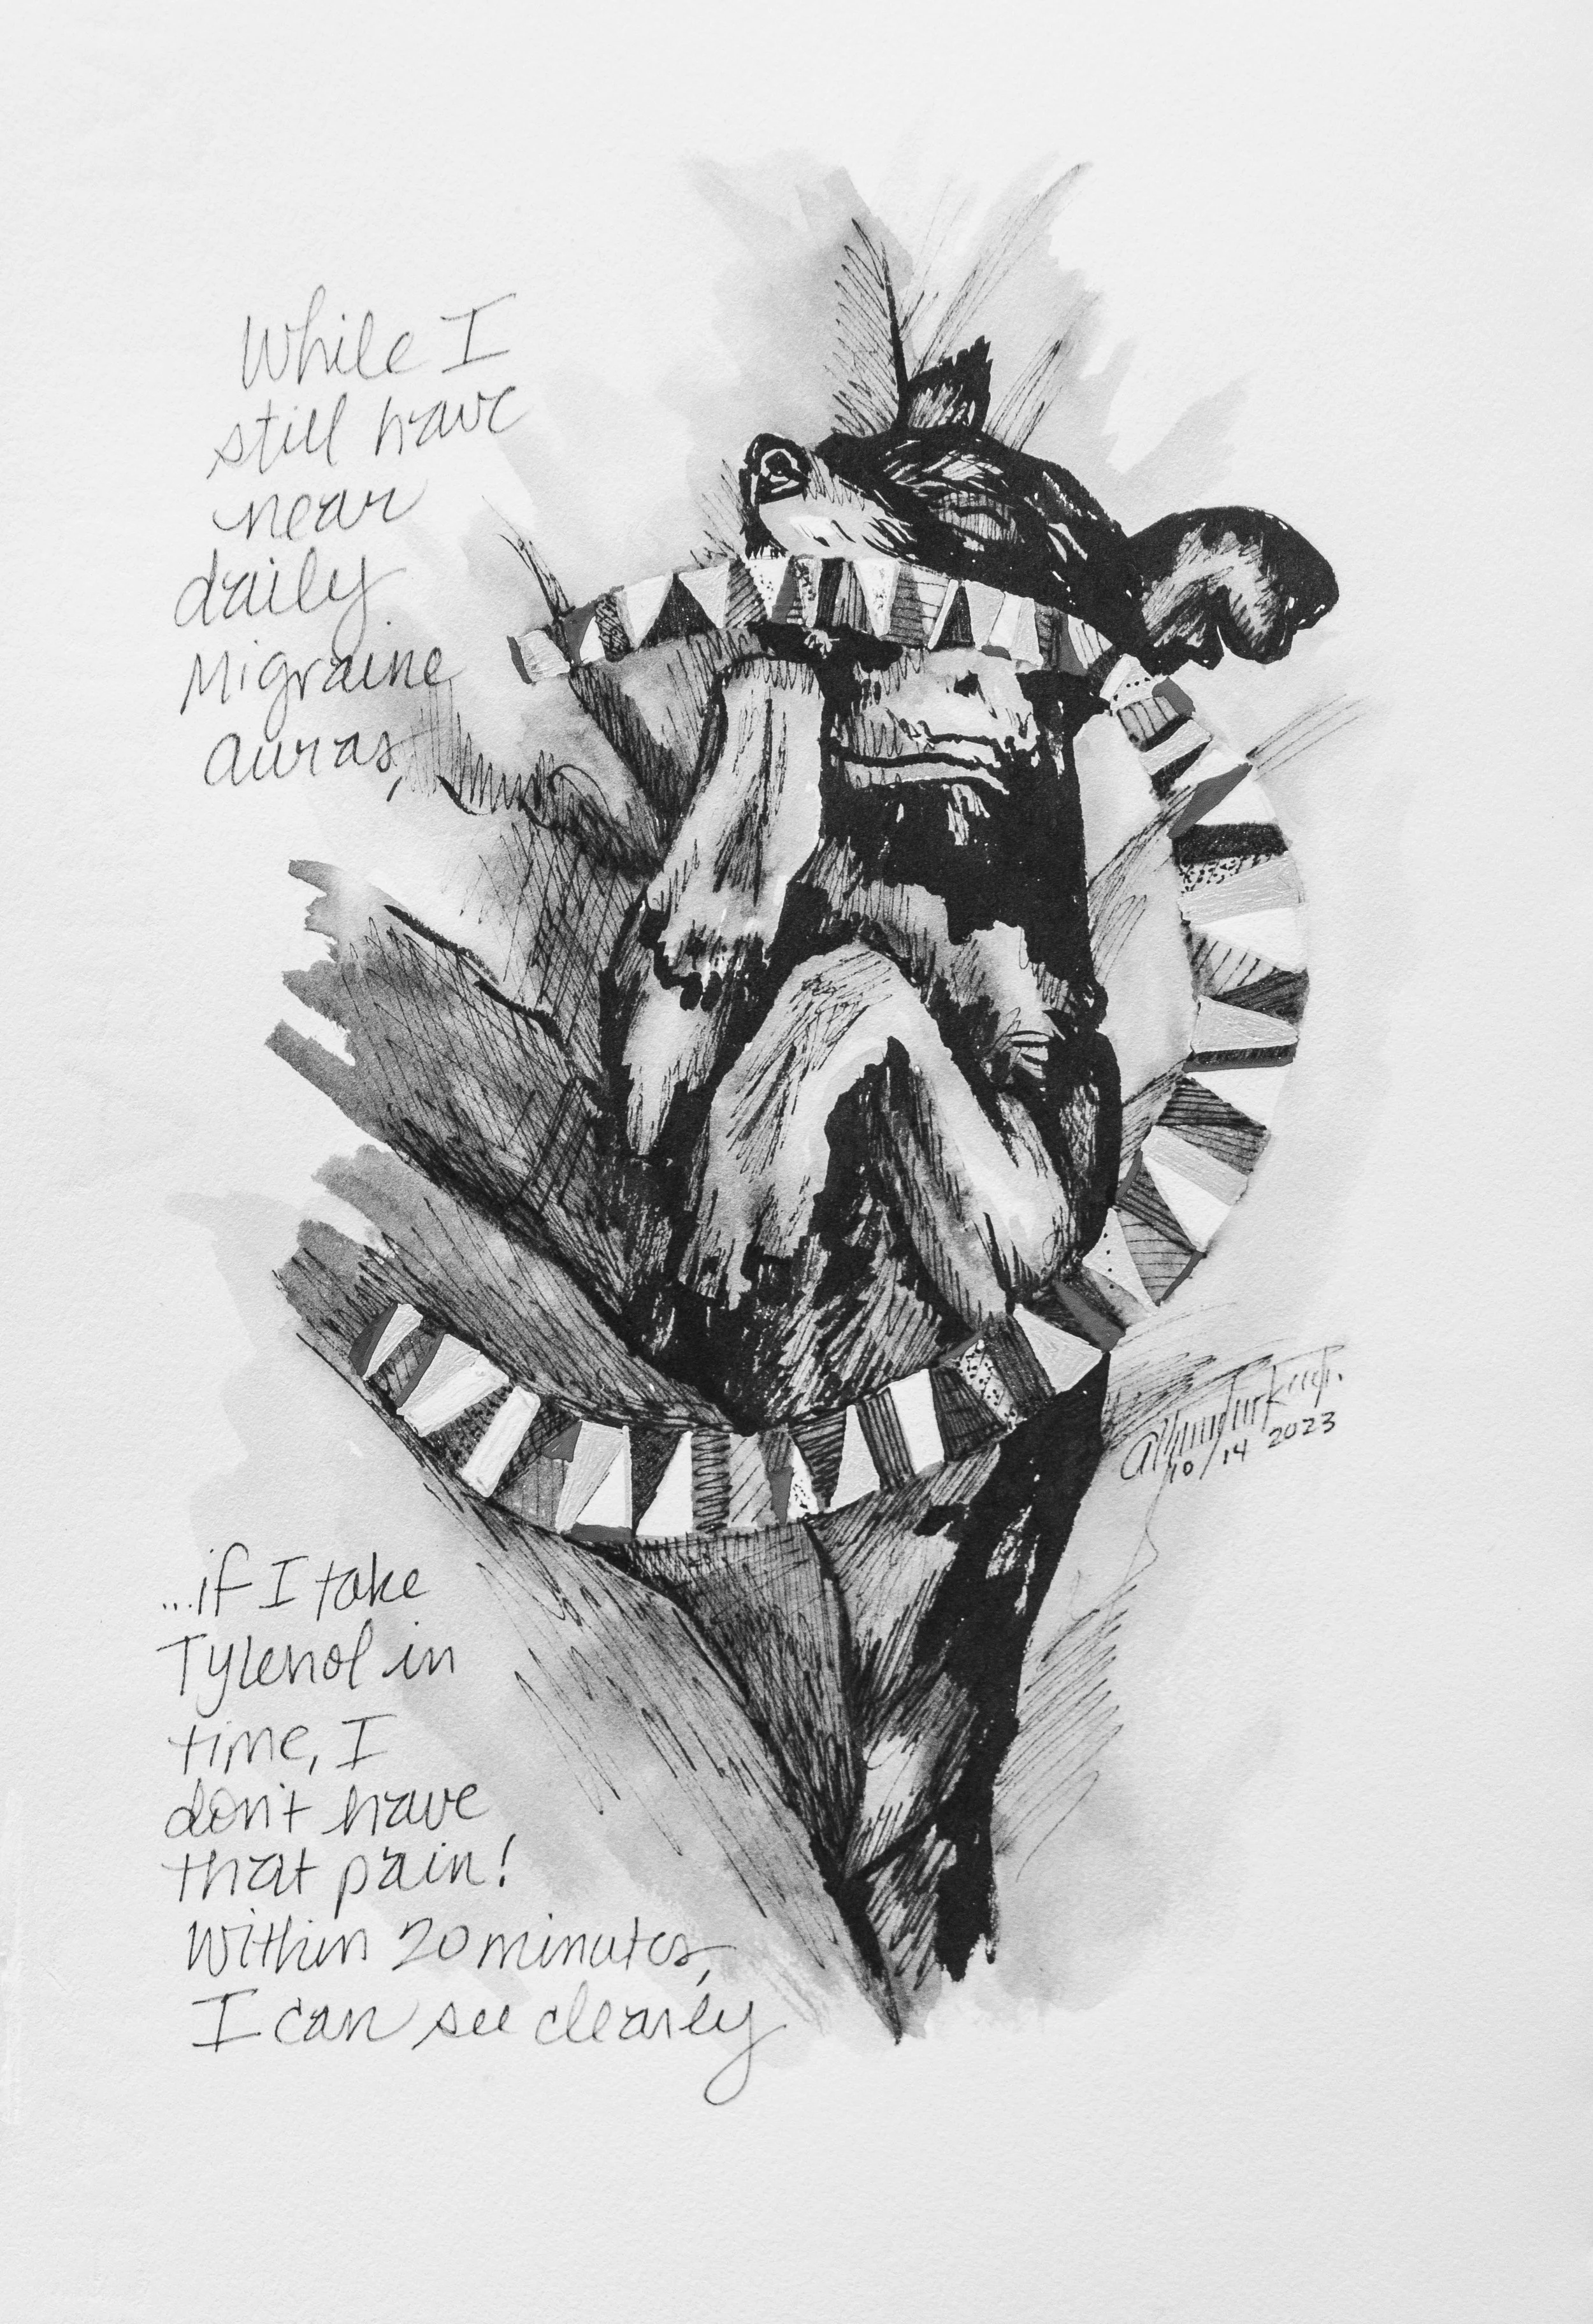 While I
still have
near
daily
Migraine
auras,
10/14 2023
...if I take
Tylenol in
time, I
don't have
that pain!
Within 20 minutes,
I can see clearly